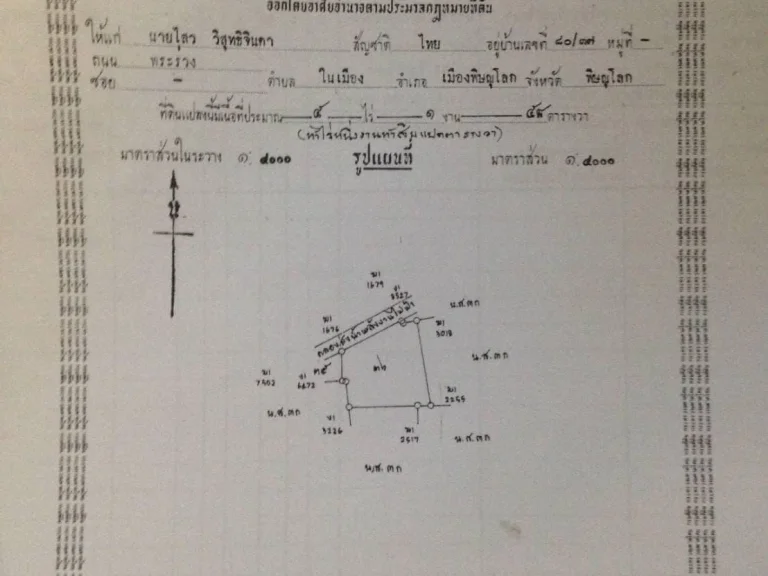 ออกโดยอาศัยอำนาจตามประมวลกฎหมายที่ดิน
ให้แก่ นายโสว วิสุทธิจินดา สัญชาติ ไทย อยู่บ้านเลขที่ ๘๐/๓๗ หมู่ที่ -
ถนน พระร่วง
ซอย - ตำบล ในเมือง อำเภอ เมืองพิษณุโลก จังหวัด พิษณุโลก
ที่ดินแปลงนี้มีเนื้อที่ประมาณ ๕ ไร่ ๑ งาน ๕๘ ตารางวา
(ห้าไร่หนึ่งงานห้าสิบแปดตารางวา)
มาตราส่วนในระวาง ๑: ๔๐๐๐ รูปแผนที่ มาตราส่วน ๑: ๔๐๐๐
น
มI
1679
ง1
2527
น.ส.ตก
มI
1676
คลองส่งน้ำพลังงานไฟฟ้า
มI
3018
๓๕
๓๖
น.ส.ตก
มI
7302
ง1
6672
มI
2255
น.ส.ตก
ง1
3226
มI
2517
น.ส.ตก
น.ส.ตก